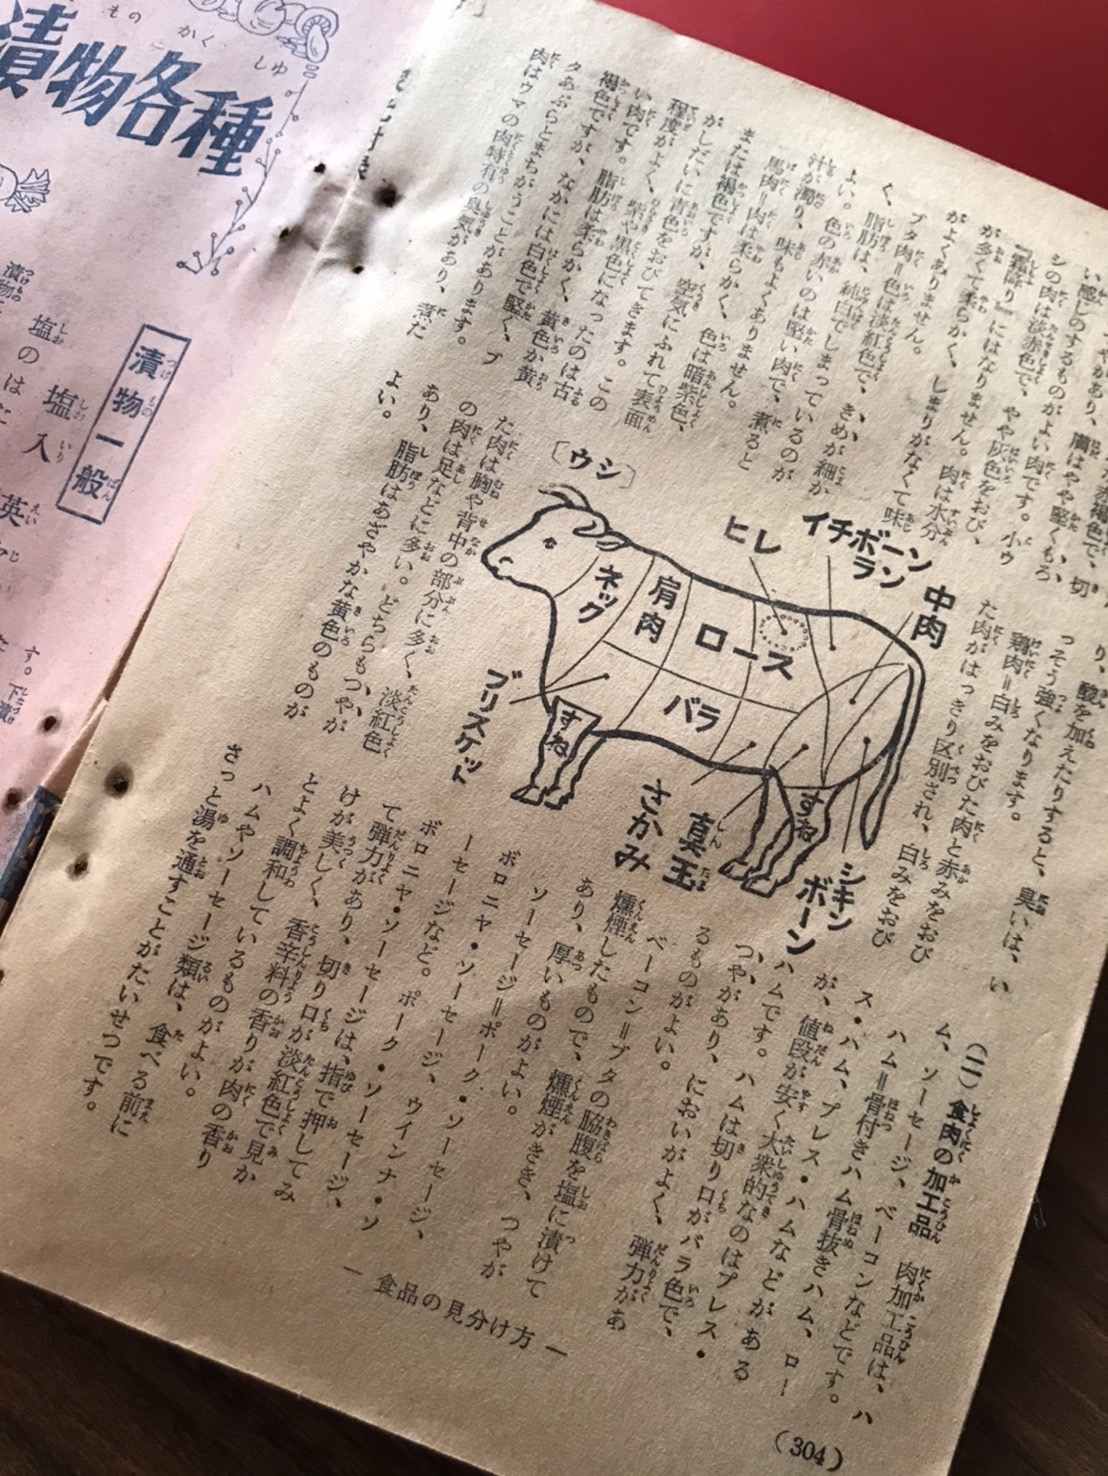 い感じのするものがよい肉です。小ウ
シの肉は淡赤色で、やや灰色をおび、
『霜降り』にはなりません。肉は水分
が多くて柔らかく、しまりがなくて味
がよくありません。
ブタ肉＝色は淡紅色で、きめが細か
く、脂肪は、純白でしまっているのが
よい。色の赤いのは堅い肉で、煮ると
汁が濁り、味もよくありません。
馬肉＝肉は柔らかく、色は暗紫色、
または褐色ですが、空気にふれて表面
がしだいに青色をおびてきます。この
程度がよく、
い肉です。脂肪は柔らかく、黄色か黄
褐色ですが、なかには白色で堅く、ブ
タあぶらとまちがうことがあります。
肉はウマの肉特有の臭気があり、煮だ
〔ウシ〕
ネック
肩肉
ロース
ヒレ
イチボーン
ラン
中肉
バラ
ブリスケット
すね
さかみ
真玉
すね
シキン
ボーン
り、酸を加えたりすると、臭いは、い
っそう強くなります。
鶏肉＝白みをおびた肉と赤みをおび
た肉がはっきり区別され、白みをおび
た肉は胸や背中の部分に多く、淡紅色
の肉は足などに多い。どちらもつやが
あり、脂肪はあざやかな黄色のものが
よい。
(二) 食肉の加工品 肉加工品は、ハ
ム、ソーセージ、ベーコンなどです。
ハム＝骨付きハム骨抜きハム、ロー
ス・ハム、プレス・ハムなどがある
が、値段が安く大衆的なのはプレス・
ハムです。ハムは切り口がバラ色で、
つやがあり、においがよく、弾力があ
るものがよい。
ベーコン＝ブタの脇腹を塩に漬けて
燻煙したもので、燻煙がきき、つやが
あり、厚いものがよい。
ソーセージ＝ポーク・ソーセージ、
ボロニヤ・ソーセージ、ウインナ・ソ
ーセージなど。ポーク・ソーセージ、
ボロニヤ・ソーセージは、指で押してみ
て弾力があり、切り口が淡紅色で見か
けが美しく、香辛料の香りが肉の香り
とよく調和しているものがよい。
ハムやソーセージ類は、食べる前に
さっと湯を通すことがたいせつです。
― 食品の見分け方 ―
(304)
漬物各種
漬物一般
塩入